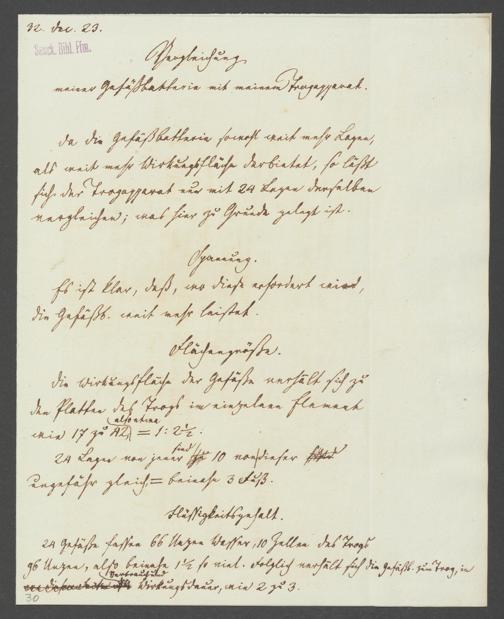 32. Dec. 23.
Senck. Bibl. Ffm.
Vergleichung
meiner Gefäßbatterie mit meinem Trogapparat.
Da die Gefäßbatterie sowohl weit mehr Lagen,
als weit mehr Wirkungsfläche darbietet, so läßt
sich der Trogapparat nur mit 24 Lagen derselben
vergleichen; was hier zu Grunde gelegt ist.
Spannung.
Es ist klar, daß, wo diese erfordert wird,
die Gefäßb. weit mehr leistet.
Flächengröße.
Die Wirkungsfläche der Gefäße verhält sich zu
den Platten des Trogs im einzelnen Element
wie 17 zu 42, = 1 : 2½.
24 Lagen von jener sind 10 von dieser
ungefähr gleich = beinahe 3 Fuß.
Flüssigkeitsgehalt.
24 Gefäße fassen 66 Unzen Wasser, 10 Zellen des Trogs
96 Unzen, also beinahe 1½ so viel. Folglich verhält sich die Gefäßb. zum Trog, in
Wirkungsdauer, wie 2 zu 3.
30